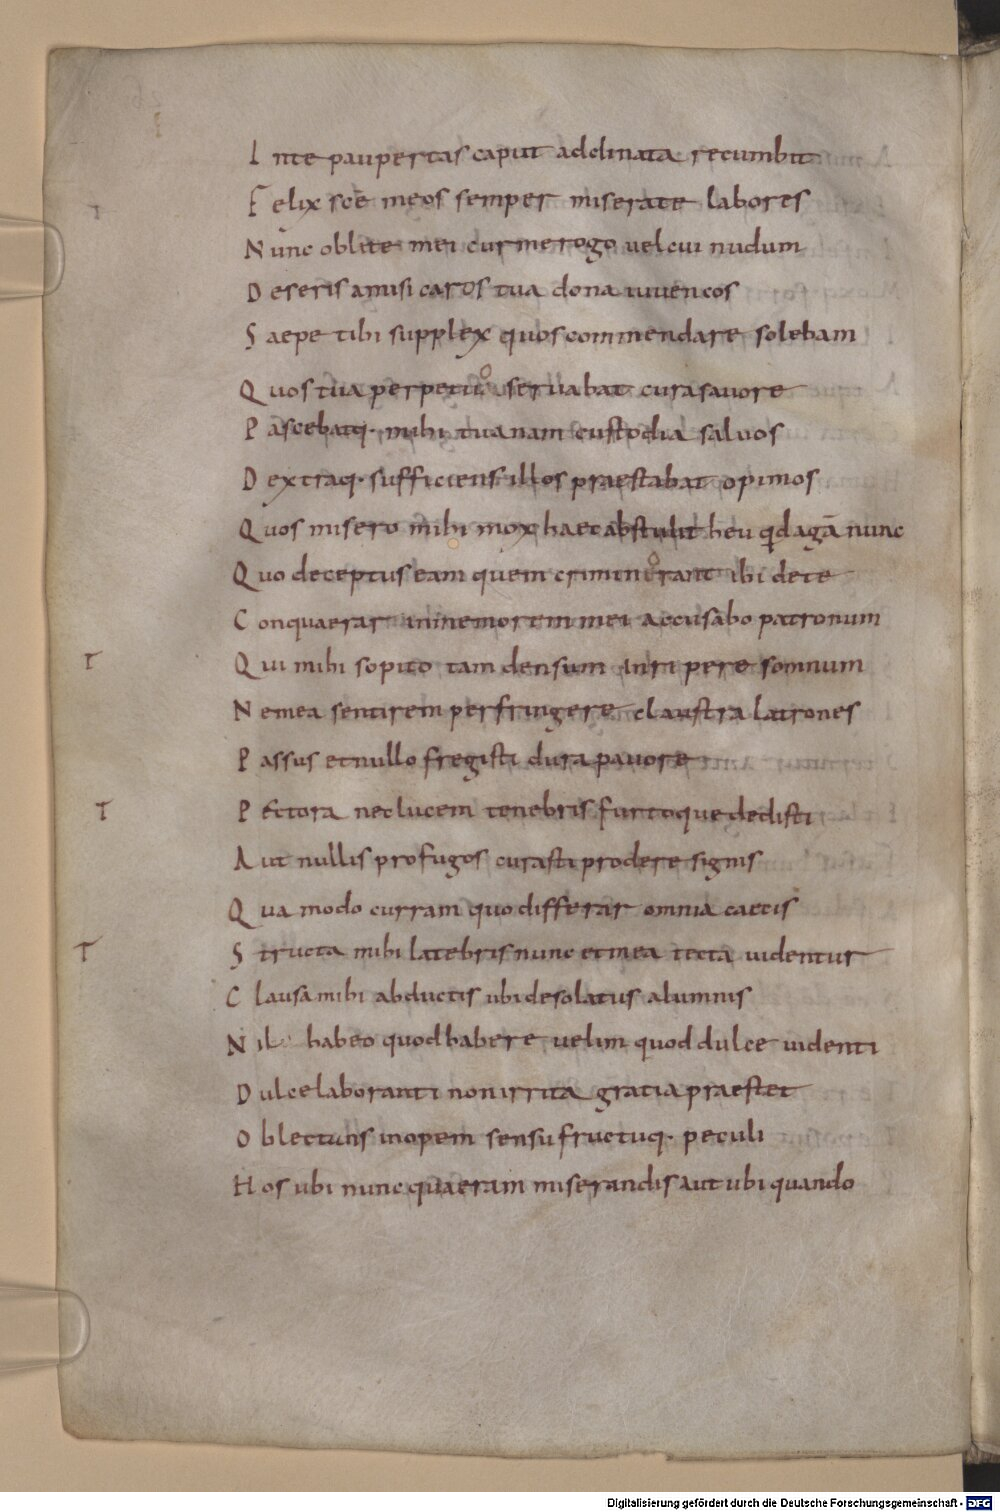 I nte paupertas caput adclinata recumbit
F elix sce meos semper miserate labores
N unc oblite mei cur me rogo uel cui nudum
D eseris amisi caros tua dona iuuencos
S aepe tibi supplex quos commendare solebam
Q uos tua perpetuo seruabat cura fauore
P ascebatq· mihi tua nam custodia saluos
D extraq· sufficiens illos praestabat opimos
Q uos misero mihi mox haec abstulit heu qd agā nunc
Q uo deceptus eam quem criminor ant ibi de te
C onquaerar inmemorem mei accusabo patronum
Q ui mihi sopito tam densum inri pere somnum
N e mea sentirem perfringere claustra latrones
P assus et nullo fregisti dura pauore
P ectora nec lucem tenebris furtoque dedisti
A ut nullis profugos curasti prodere signis
Q ua modo curram quo differar omnia caecis
S tructa mihi latebris nunc et mea tecta uidentur
C lausa mihi abductis ubi desolatus alumnis
N il habeo quod habere uelim quod dulce uidenti
D ulce laboranti non irrita gratia praestet
O blectans inopem sensu fructuq· peculi
H os ubi nunc quaeram miserandis aut ubi quando
T
T
T
T
Digitalisierung gefördert durch die Deutsche Forschungsgemeinschaft - DFG